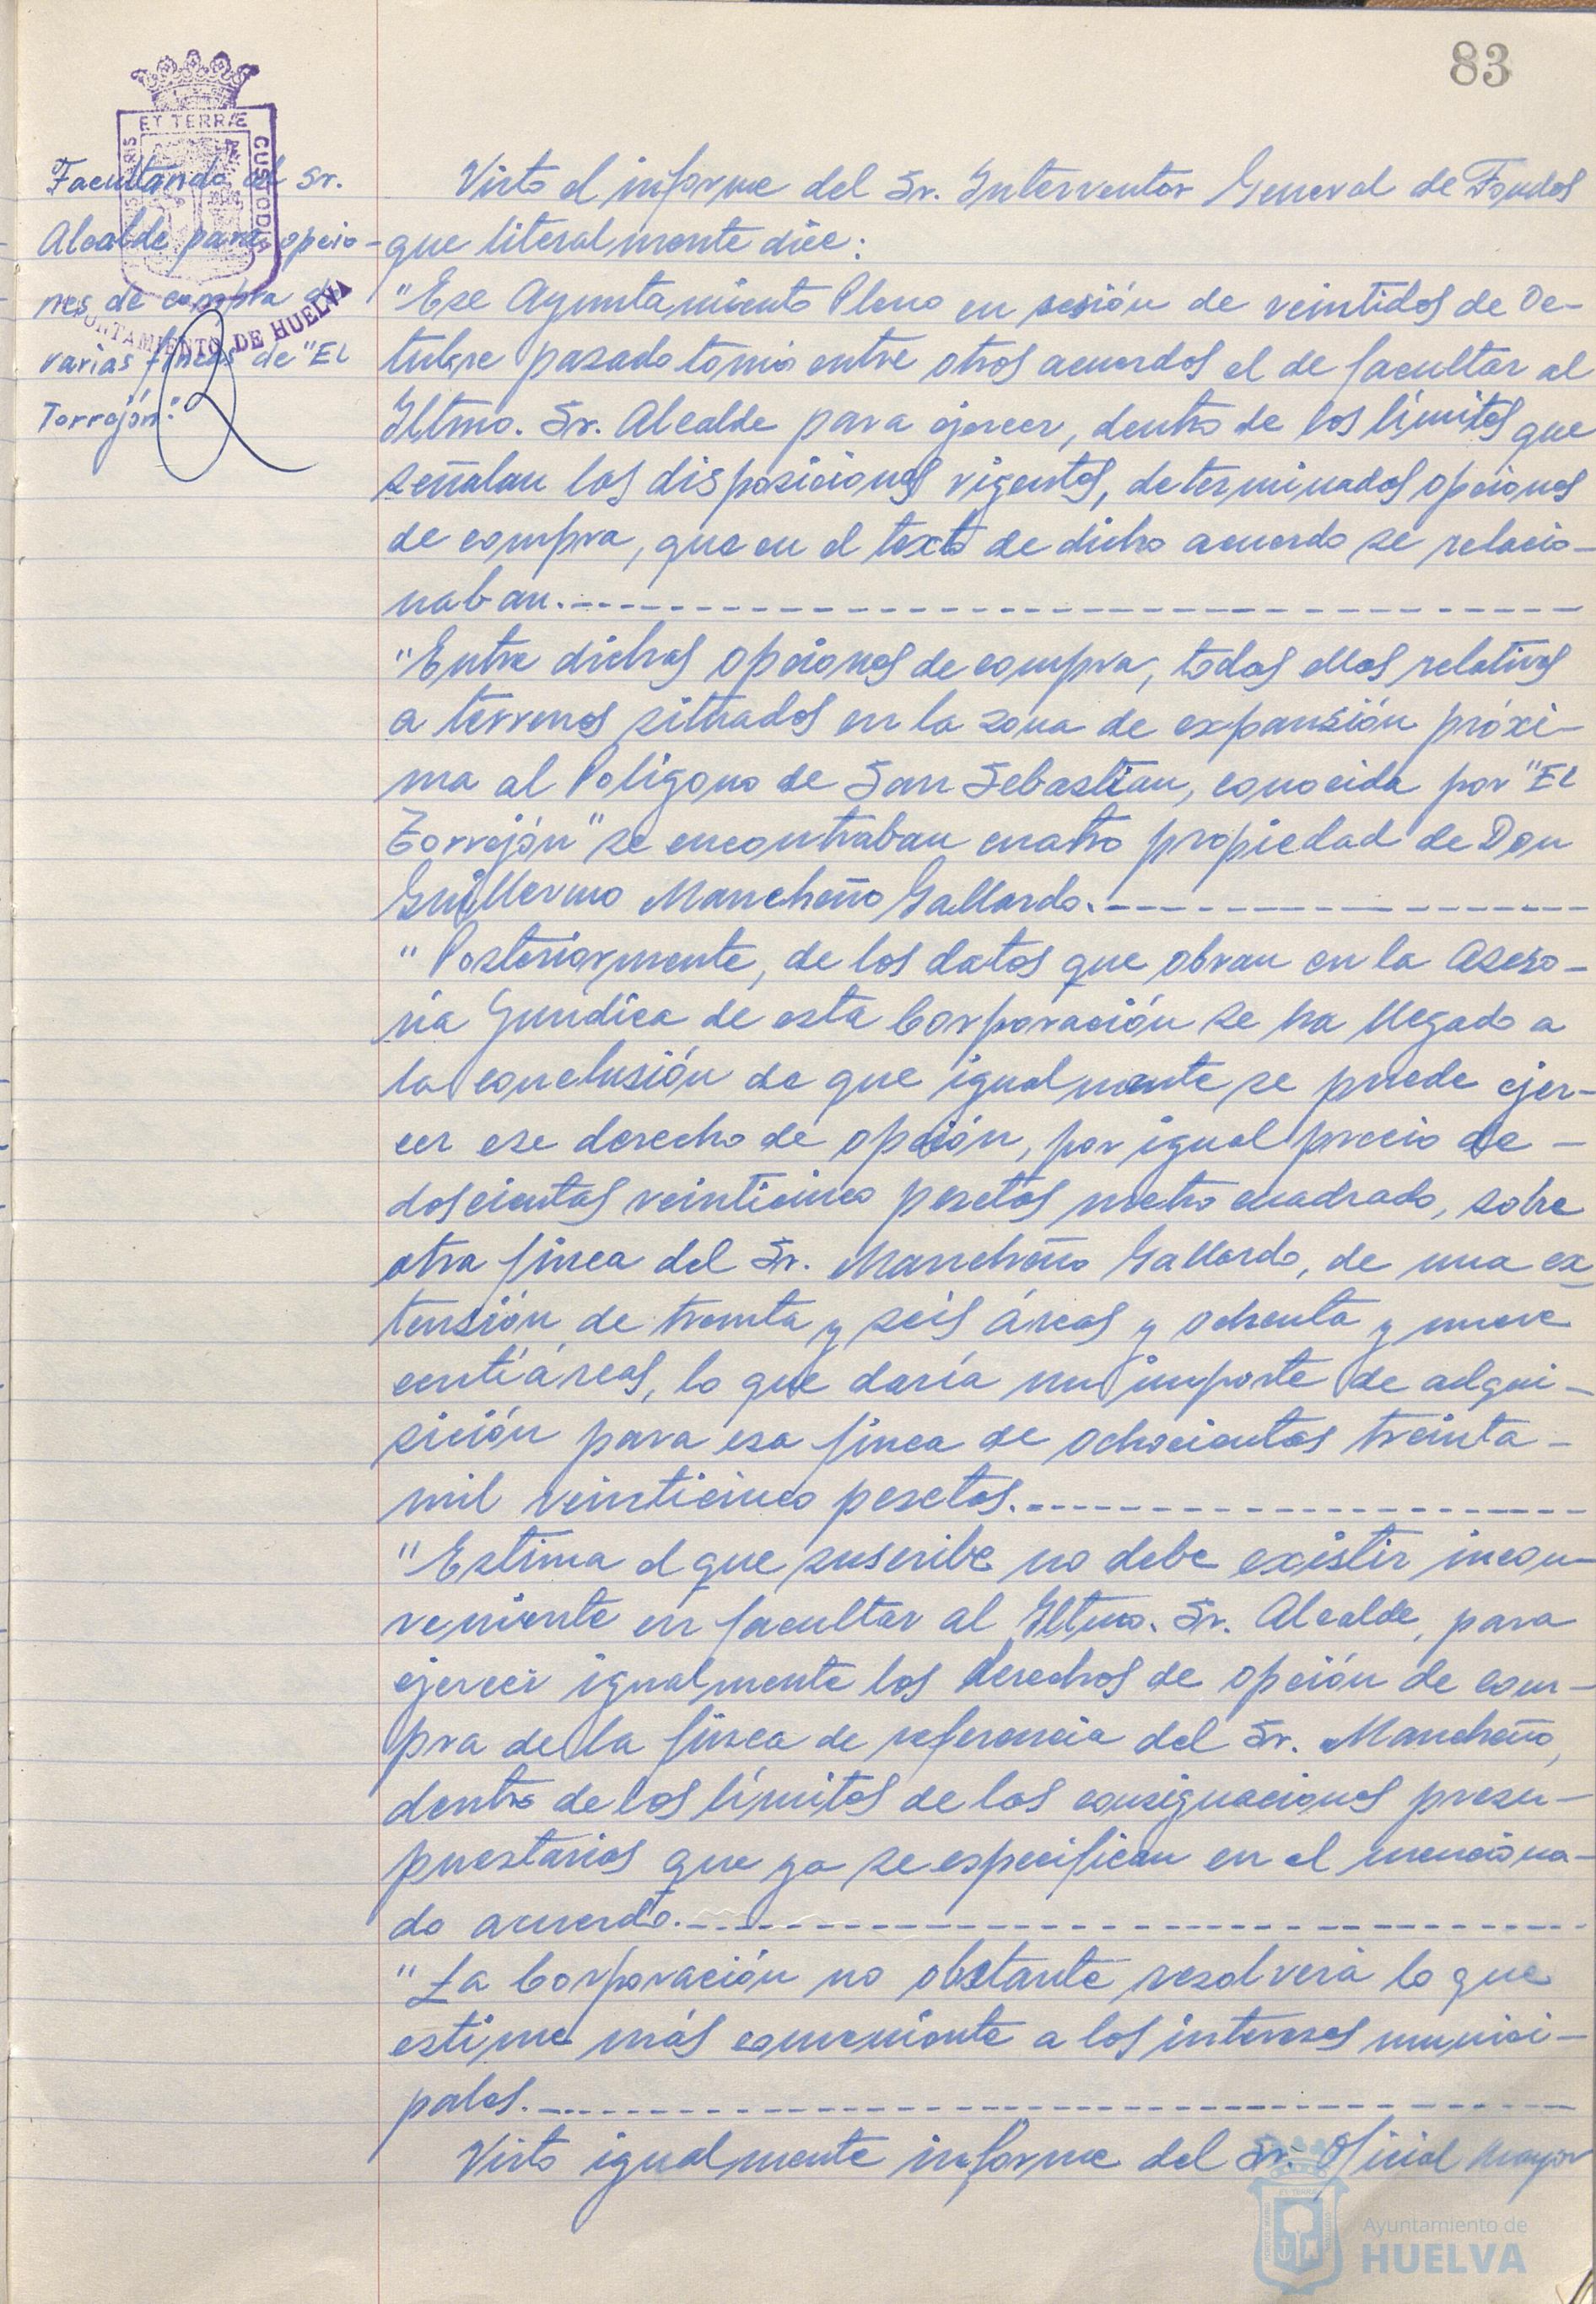 83
ET TERRÆ
CUSTODIA
AYUNTAMIENTO DE HUELVA
Facultando al Sr.
Alcalde para opcio-
nes de compra de
varias fincas de "El
Torrejón".
Visto el informe del Sr. Interventor General de Fondos
que literalmente dice:
"Ese Ayuntamiento Pleno en sesión de veintidos de Oc-
tubre pasado tomó entre otros acuerdos el de facultar al
Iltmo. Sr. Alcalde para ejercer, dentro de los límites que
señalan las disposiciones vigentes, determinadas opciones
de compra, que en el texto de dicho acuerdo se relacio-
naban.
"Entre dichas opciones de compra, todas ellas relativas
a terrenos situados en la zona de expansión próxi-
ma al Poligono de San Sebastian, conocida por "El
Torrejón" se encontraban cuatro propiedad de Don
Guillermo Mancheño Gallardo.
"Posteriormente, de los datos que obran en la Aseso-
ria Juridica de esta Corporación se ha llegado a
la conclusión de que igualmente se puede ejer-
cer ese derecho de opción, por igual precio de -
doscientas veinticinco pesetas metro cuadrado, sobre
otra finca del Sr. Mancheño Gallardo, de una ex
tensión de treinta y seis áreas y ochenta y nueve
centiáreas, lo que daría un importe de adqui-
sición para esa finca de ochocientas treinta -
mil veinticinco pesetas.
"Estima el que suscribe no debe existir incon-
veniente en facultar al Iltmo. Sr. Alcalde, para
ejercer igualmente los derechos de opción de com-
pra de la finca de referencia del Sr. Mancheño,
dentro de los límites de las consignaciones presu-
puestarias que ya se especifican en el menciona-
do acuerdo.
"La Corporación no obstante resolverá lo que
estime más conveniente a los intereses munici-
pales.
Visto igualmente informe del Sr. Oficial Mayor
Ayuntamiento de
HUELVA